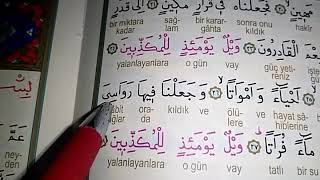 مَهِينٍ ﴿٢٠﴾ فَجَعَلْنَاهُ فِي قَرَارٍ مَكِينٍ ﴿٢١﴾ اِلٰى قَدَرٍ
bir miktara kadar sağ-lam bir karar-gâhta sonra onu kıldık hakir
فَنِعْمَ الْقَادِرُونَ ﴿٢٣﴾ وَيْلٌ يَوْمَئِذٍ لِلْمُكَذِّبِينَ
yalanlayanlara o gün vay güç yeti-ren
اَحْيَاءً وَاَمْوَاتًا ﴿٢٦﴾ وَجَعَلْنَا فِيهَا رَوَاسِيَ
sâbit dağlar ora-da kıldık ve ölü-ler ve hayat sâ-hiblerine
مَاءً فُرَاتًا ﴿٢٧﴾ وَيْلٌ يَوْمَئِذٍ لِلْمُكَذِّبِينَ
yalanlayanlara o gün vay tatlı bir su
عَمَّ
ney-den